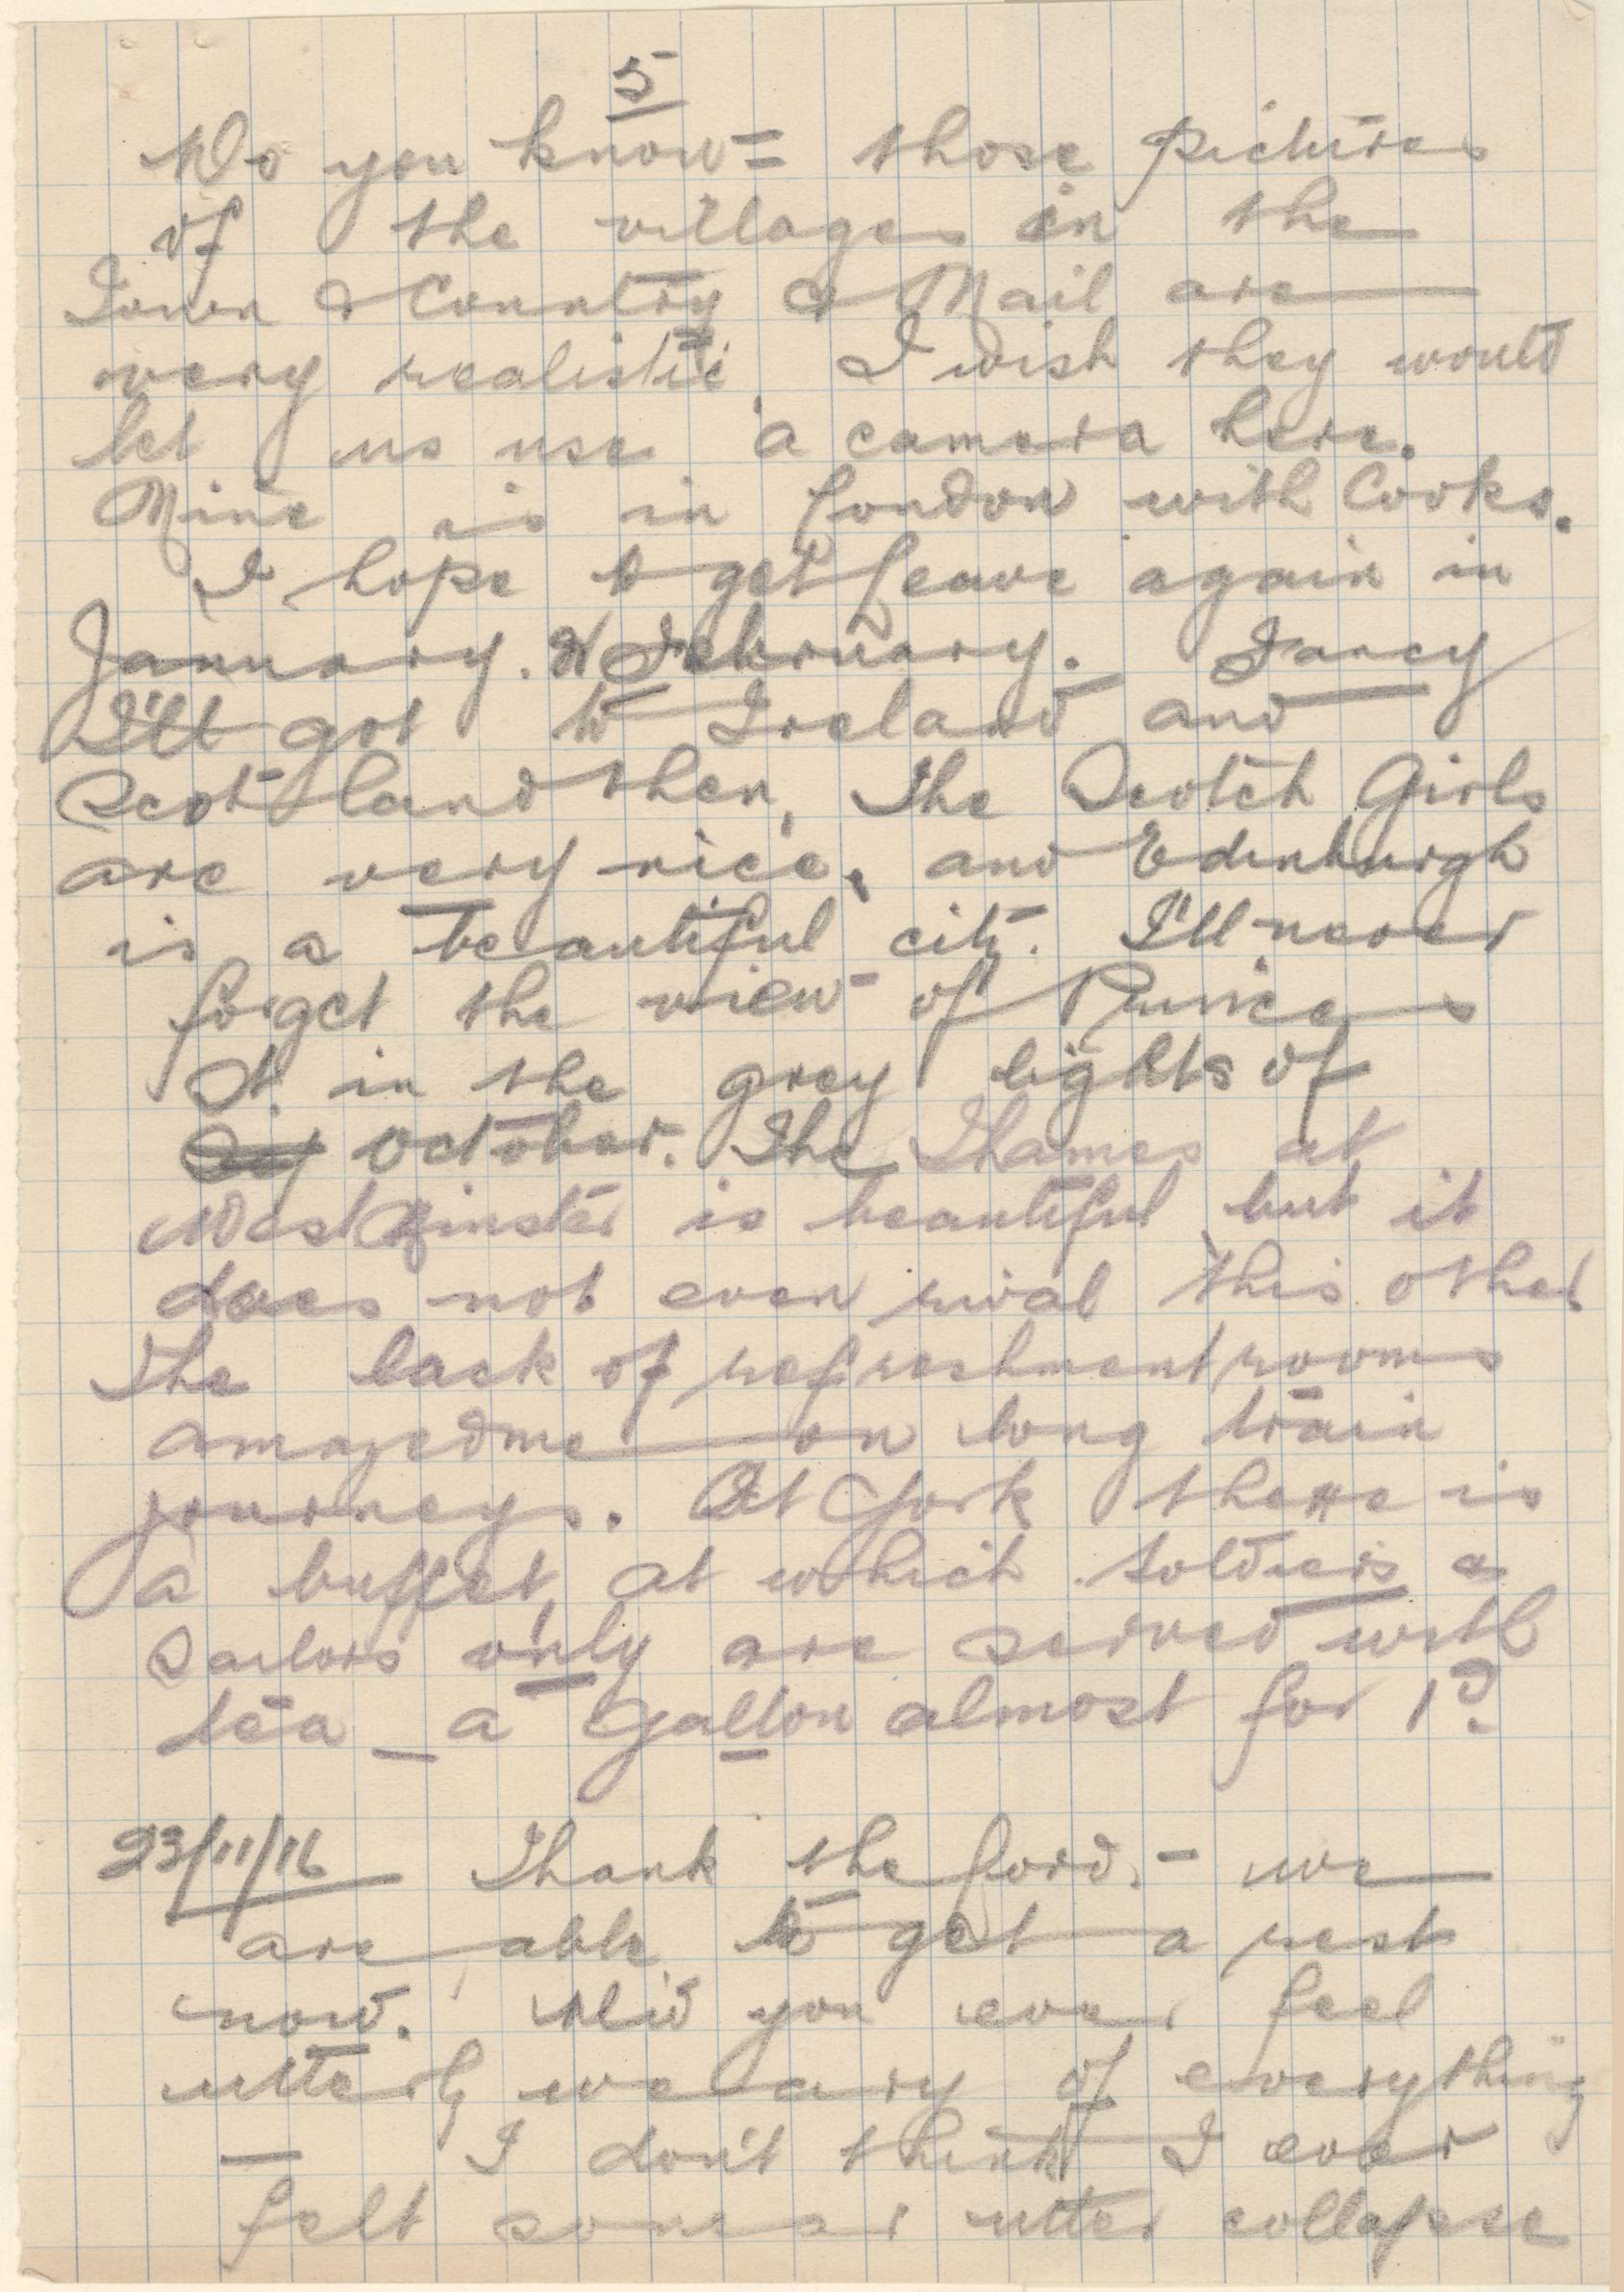 5
Do you know = those pictures
of the villages in the
Town & Country & Mail are
very realistic. I wish they would
let us use a camera here.
Mine is in London with Cooks.
I hope to get leave again in
January. or February. Fancy
I'll got to Ireland and
Scotland then, The Scotch Girls
are very nice, and Edinburgh
is a beautiful city. I'll never
forget the view of Princes
St. in the grey lights of
October. The Thames at
Westminster is beautiful but it
does not even rival this other
The lack of refreshment rooms
amazed me on long train
journeys. At York there is
a buffet, at which soldiers &
Sailors only are served with
tea _ a Gallon almost for 1d.
23/11/16 Thank the Lord, - we
are able to get a rest
now. Did you ever feel
utterly weary of everything
— I don't think I ever
felt so near utter collapse